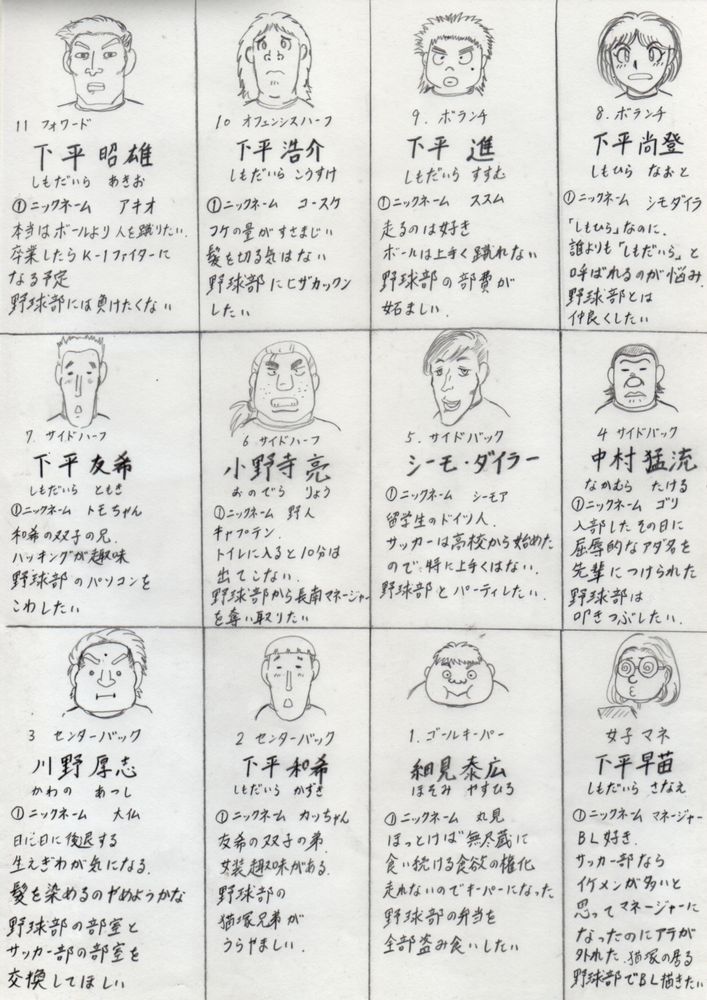 11 フォワード
下平 昭雄
しもだいら あきお
①ニックネーム アキオ
本当はボールより人を蹴りたい.
卒業したらK-1ファイターに
なる予定
野球部には負けたくない
10 オフェンシスハーフ
下平 浩介
しもだいら こうすけ
①ニックネーム コースケ
コケの量がすさまじい
髪を切る気はない
野球部にヒザカックン
したい
9. ボランチ
下平 進
しもだいら すすむ
①ニックネーム ススム
走るのは好き
ボールは上手く蹴れない
野球部の部費が
妬ましい.
8. ボランチ
下平尚登
しもひら なおと
①ニックネーム シモダイラ
「しもひら」なのに.
誰よりも「しもだいら」と
呼ばれるのが悩み.
野球部とは
仲良くしたい
7. サイドハーフ
下平友希
しもだいら ともき
①ニックネーム トモちゃん
和希の双子の兄.
ハッキングが趣味
野球部のパソコンを
こわしたい
6 サイドハーフ
小野寺 亮
おのでら りょう
①ニックネーム 野人
キャプテン.
トイレに入ると10分は
出てこない.
野球部から長南マネージャー
を奪い取りたい
5. サイドバック
シーモ・ダイラー
①ニックネーム シーモア
留学生のドイツ人.
サッカーは高校から始めた
ので特に上手くはない.
野球部とパーティしたい.
4 サイドバック
中村 猛流
なかむら たける
①ニックネーム ゴリ
入部したその日に
屈辱的なアダ名を
先輩につけられた
野球部は
叩きつぶしたい.
3 センターバック
川野厚志
かわの あつし
①ニックネーム 大仏
日に日に後退する
生えぎわが気になる.
髪を染めるのやめようかな
野球部の部室と
サッカー部の部室を
交換してほしい
2 センターバック
下平和希
しもだいら かずき
①ニックネーム カッちゃん
友希の双子の弟.
女装趣味がある.
野球部の
猫塚兄弟が
うらやましい.
1. ゴールキーパー
細見泰広
ほそみ やすひろ
①ニックネーム 丸見
ほっとけば無尽蔵に
食い続ける食欲の権化
走れないのでキーパーになった
野球部の弁当を
全部盗み食いしたい
女子マネ
下平早苗
しもだいら さなえ
①ニックネーム マネージャー
BL好き.
サッカー部なら
イケメンが多いと
思ってマネージャーに
なったのにアテが
外れた. 猫塚の居る
野球部でBL描きたい